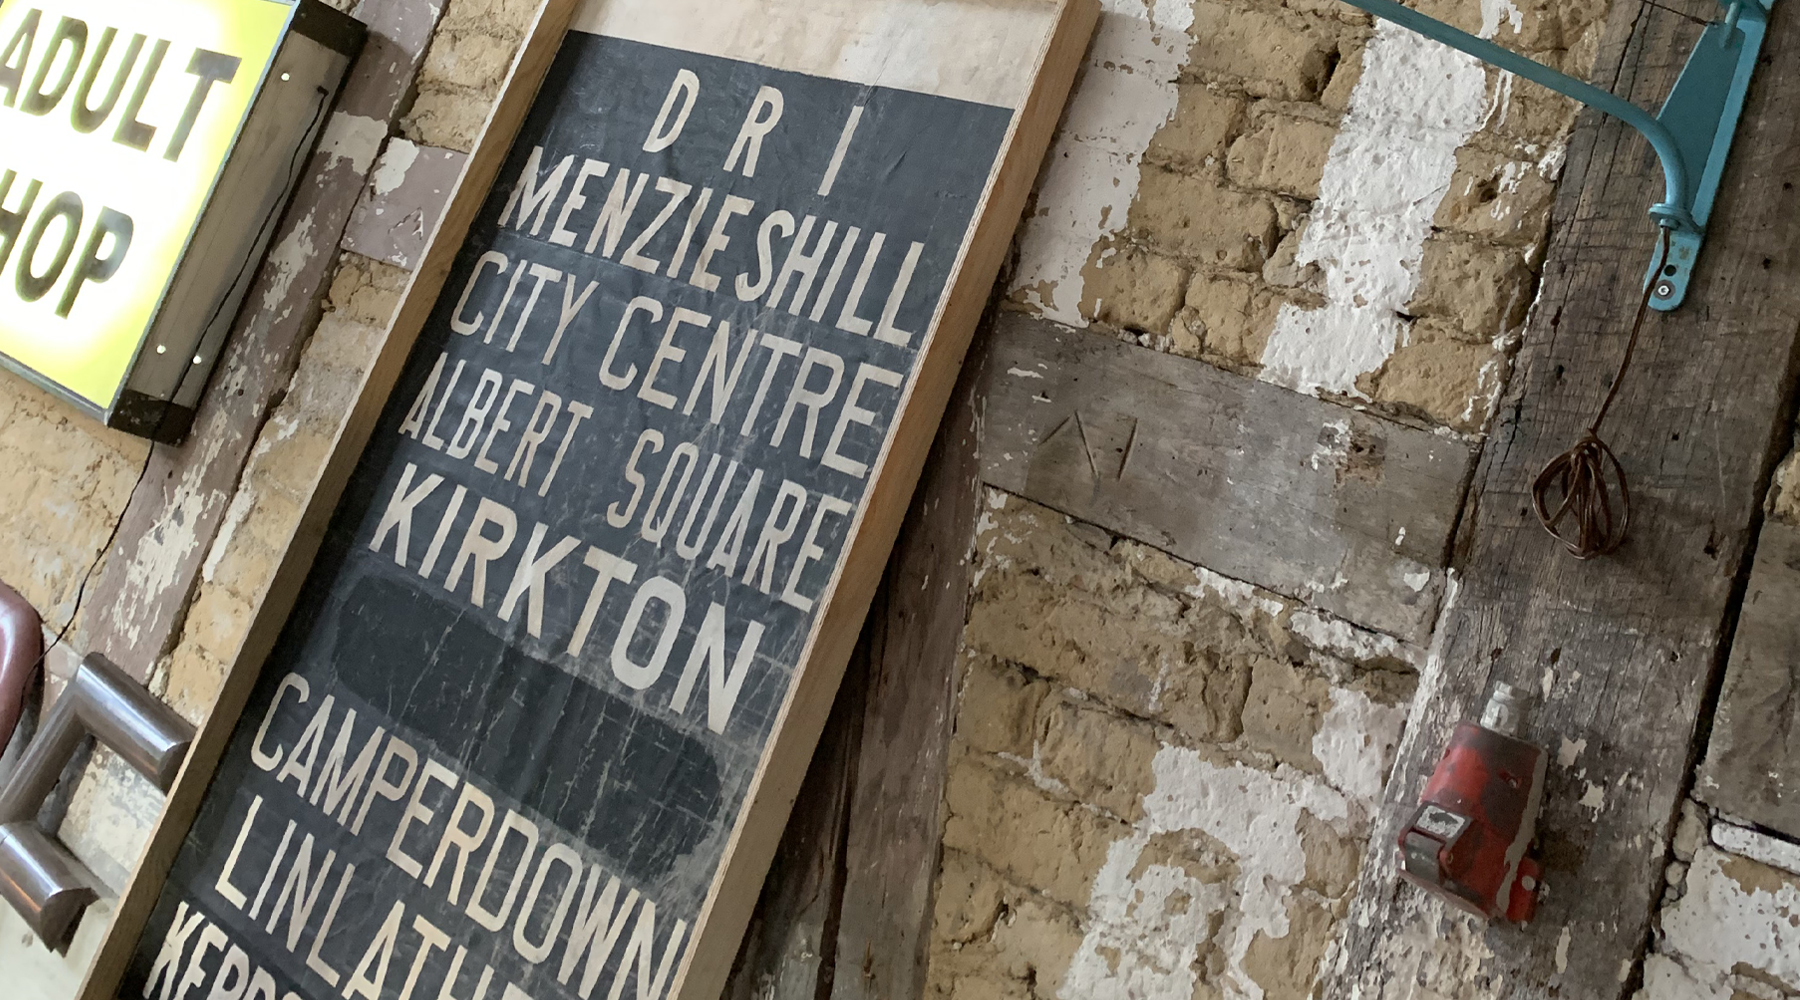 ADULT
HOP
D R I
MENZIESHILL
CITY CENTRE
ALBERT SQUARE
KIRKTON
CAMPERDOWN
LINLATHE